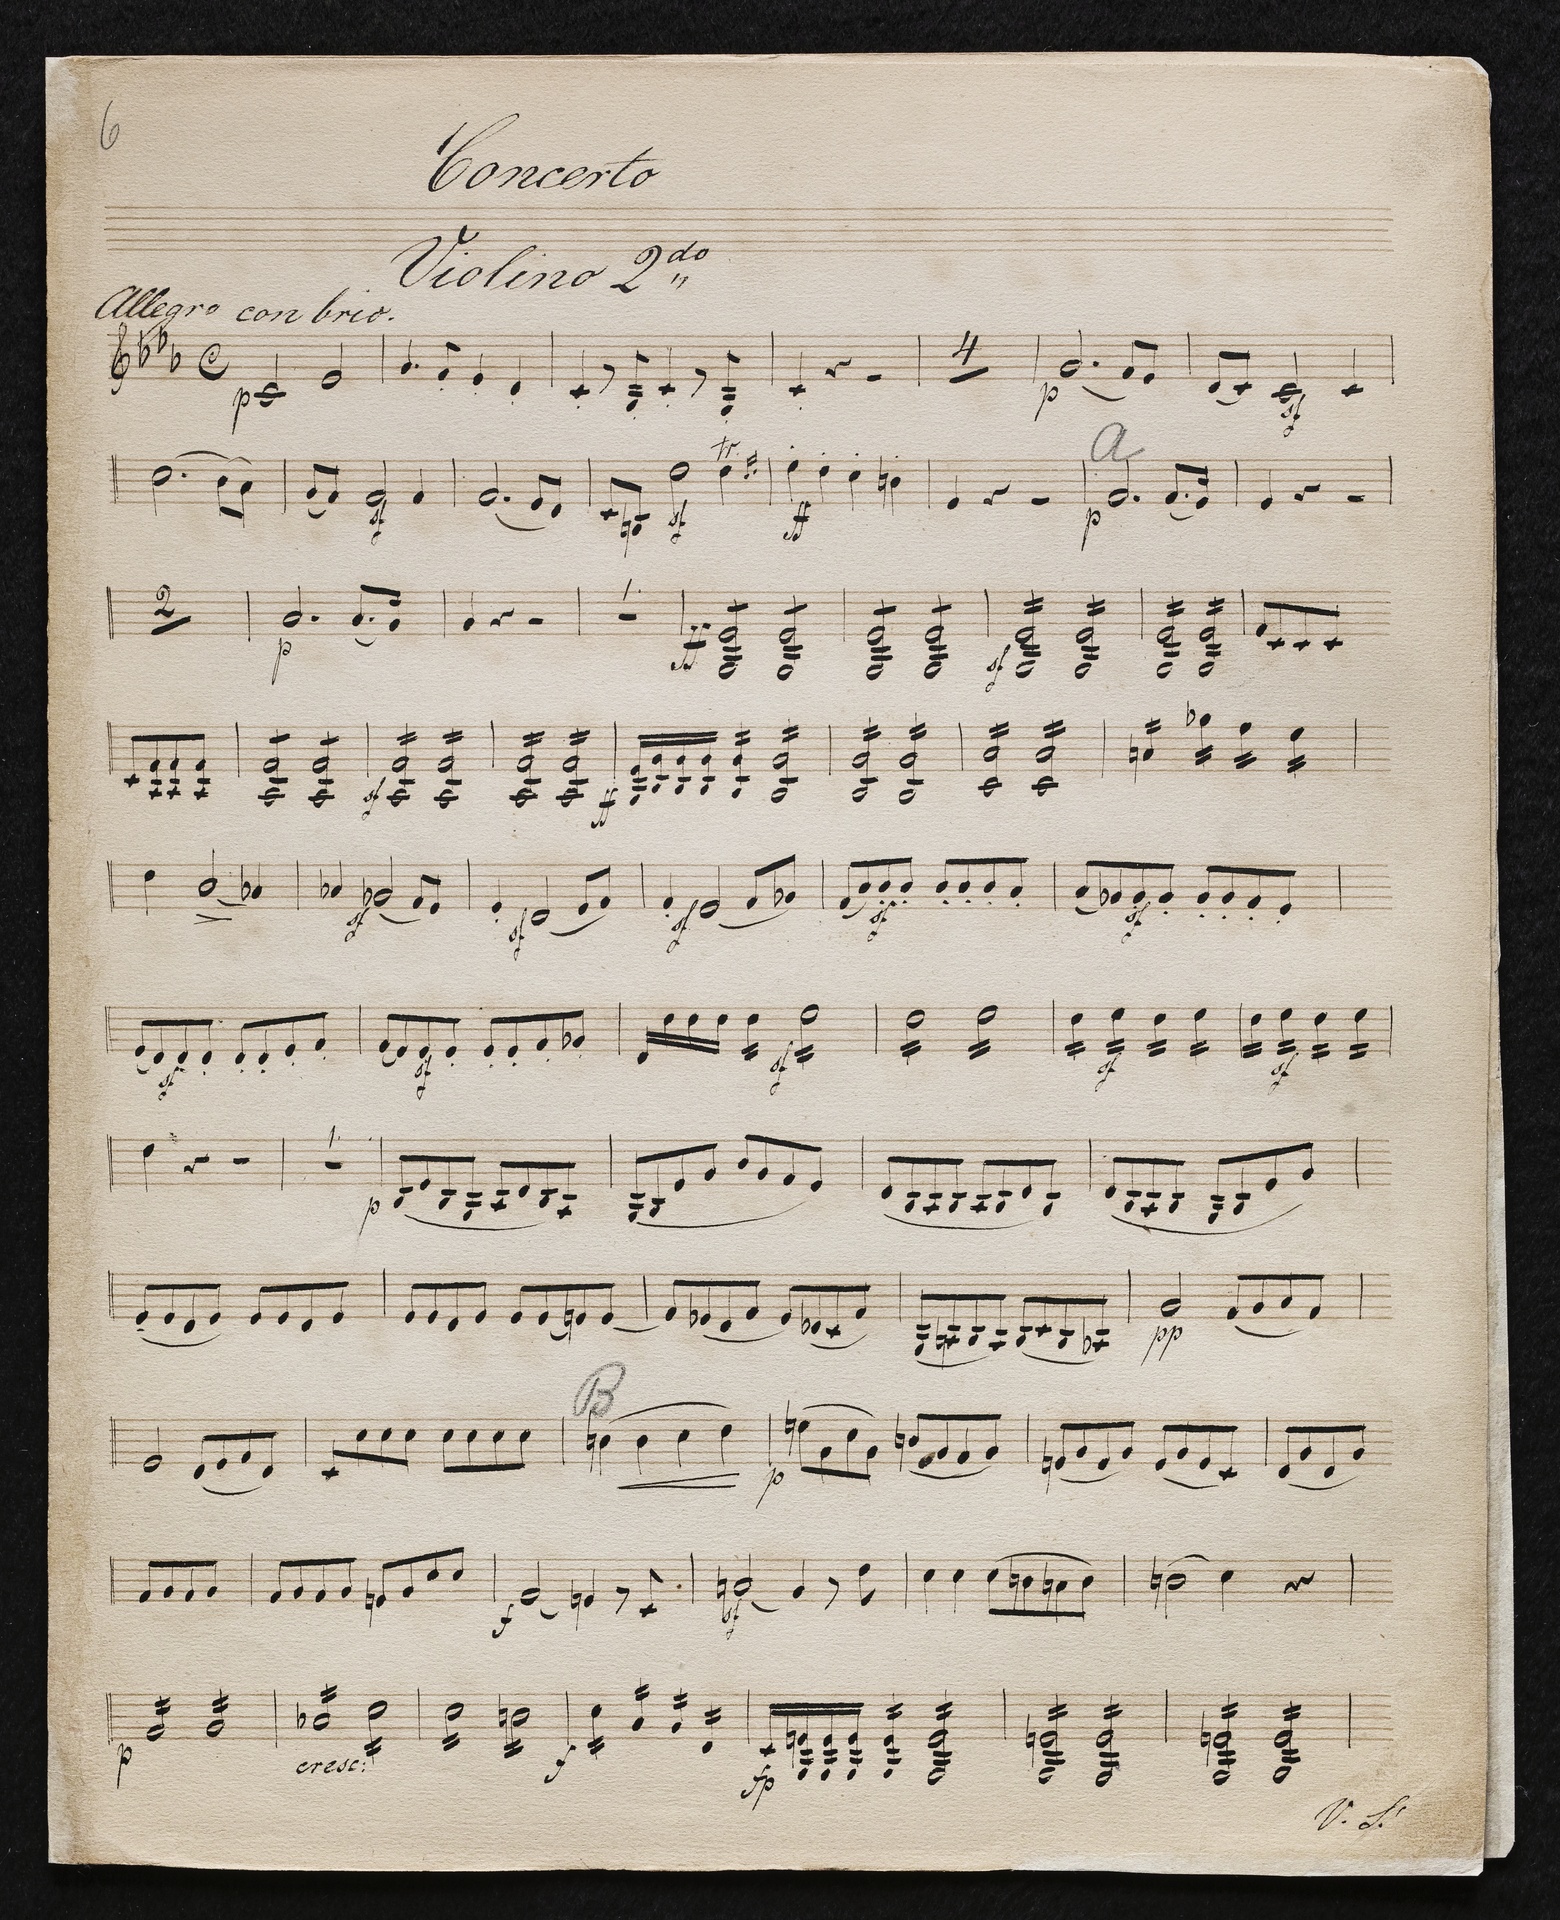 6
Concerto
Violino 2do
Allegro con brio.
p 4 p sf
sf tr sf ff a p
2 p 1. ff sf
sf ff
sf sf sf sf sf
sf sf sf sf sf
1. p
pp
B p
f sf
p cresc: f fp
V. S.